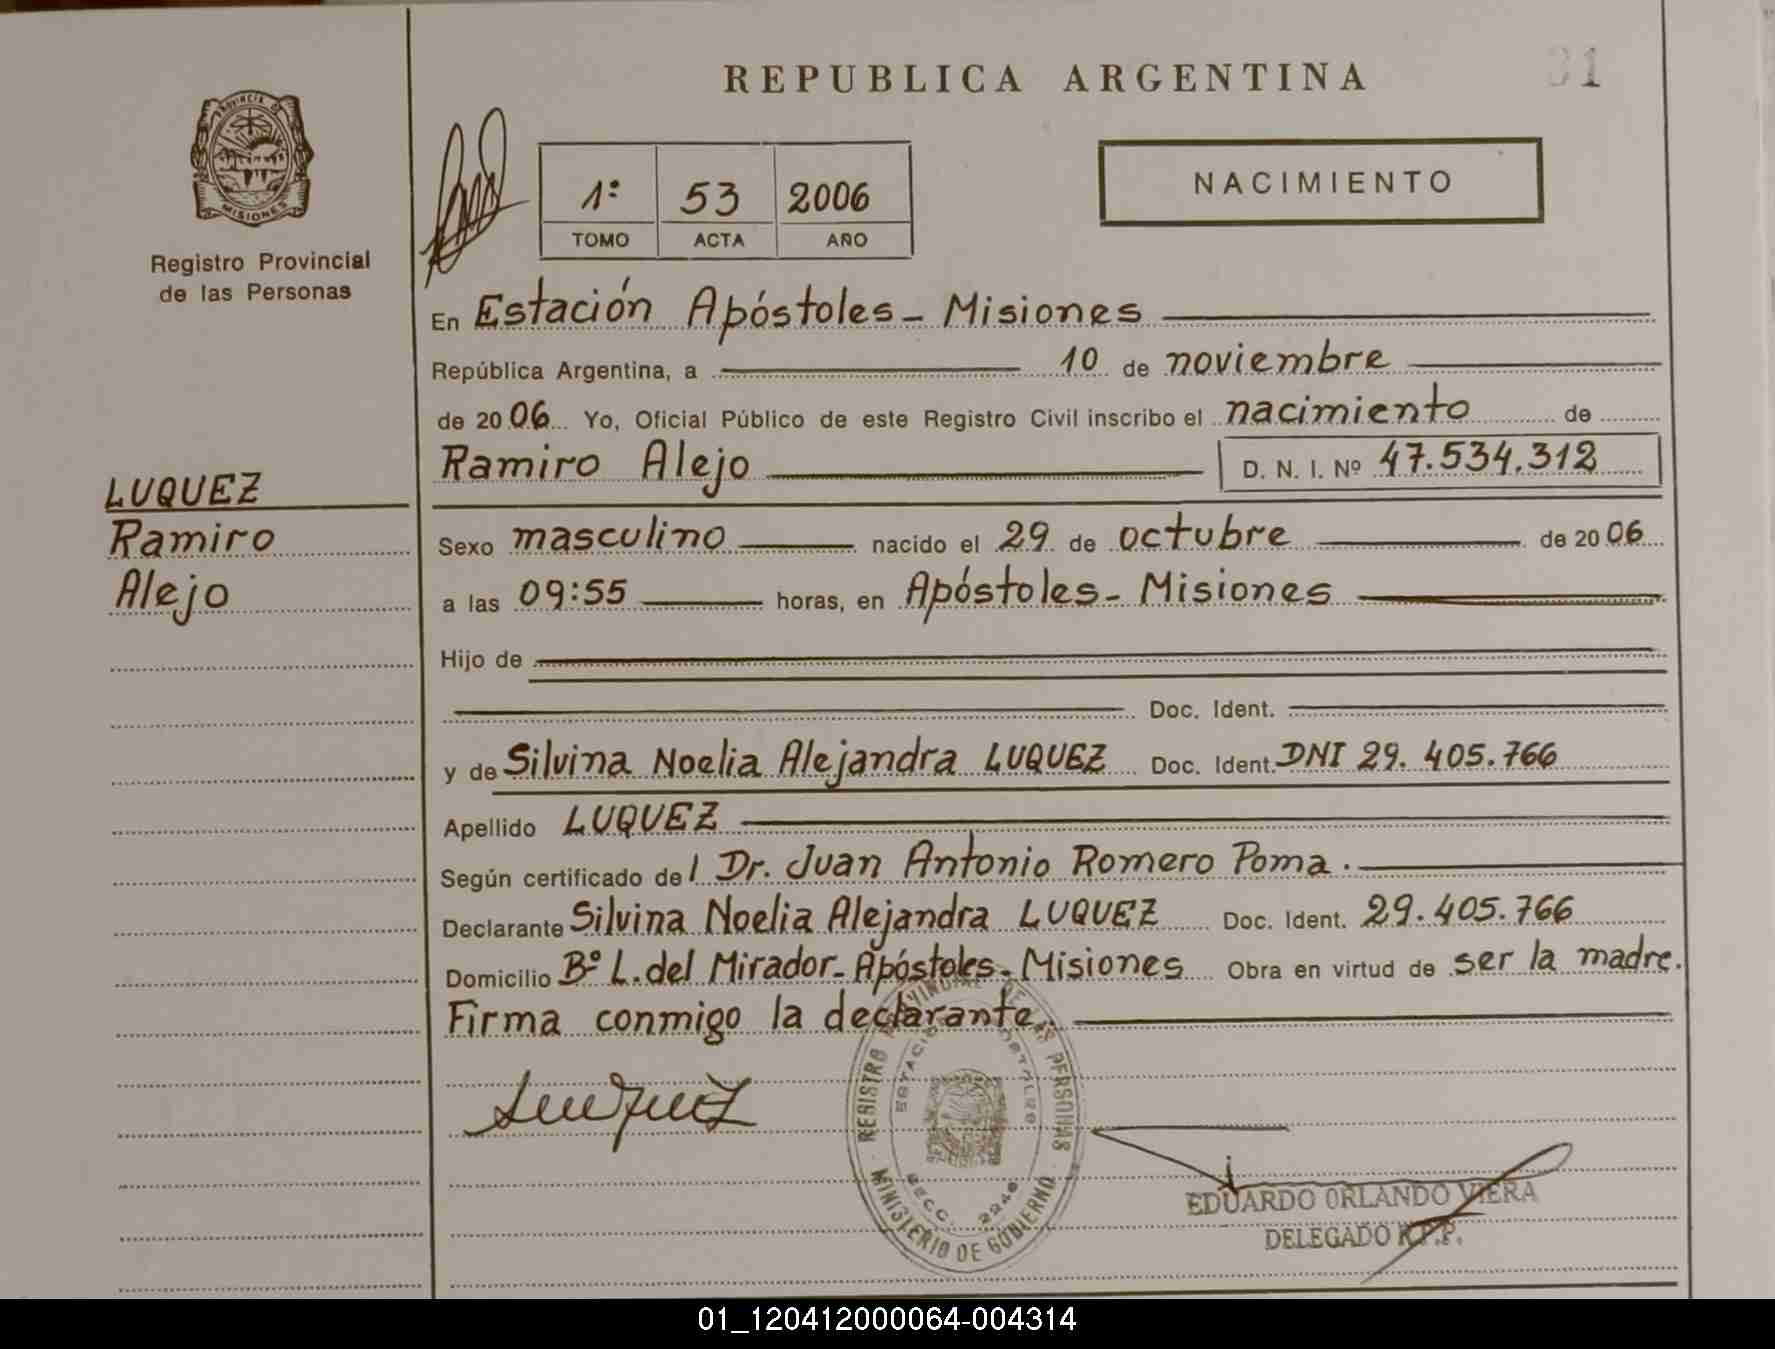 REPUBLICA ARGENTINA
31
PROVINCIA DE
MISIONES
Registro Provincial
de las Personas
1º 53 2006
TOMO ACTA AÑO
NACIMIENTO
En Estación Apóstoles - Misiones
República Argentina, a 10 de noviembre
de 2006 Yo, Oficial Público de este Registro Civil inscribo el nacimiento de
Ramiro Alejo D. N. I. Nº 47.534.312
LUQUEZ
Ramiro
Alejo
Sexo masculino nacido el 29 de octubre de 2006
a las 09:55 horas, en Apóstoles - Misiones
Hijo de
Doc. Ident.
y de Silvina Noelia Alejandra LUQUEZ Doc. Ident. DNI 29.405.766
Apellido LUQUEZ
Según certificado del Dr. Juan Antonio Romero Poma.
Declarante Silvina Noelia Alejandra LUQUEZ Doc. Ident. 29.405.766
Domicilio Bº L. del Mirador - Apóstoles - Misiones Obra en virtud de ser la madre.
Firma conmigo la declarante.
Luquez
REGISTRO PROVINCIAL DE LAS PERSONAS
MINISTERIO DE GOBIERNO
SECC. 2246
EDUARDO ORLANDO VIERA
DELEGADO R.P.P.
01_120412000064-004314